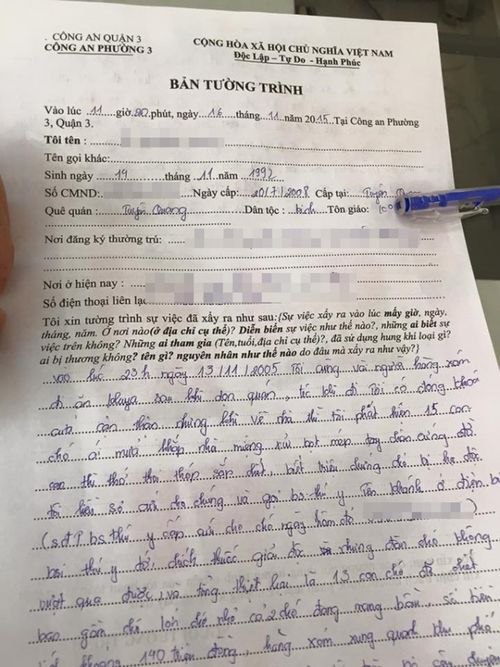 CÔNG AN QUẬN 3
CÔNG AN PHƯỜNG 3
CỘNG HÒA XÃ HỘI CHỦ NGHĨA VIỆT NAM
Độc Lập – Tự Do - Hạnh Phúc
BẢN TƯỜNG TRÌNH
Vào lúc 11 giờ 20 phút, ngày 16 tháng 11 năm 2015 Tại Công an Phường
3, Quận 3.
Tôi tên :
Tên gọi khác:
Sinh ngày 19 tháng 11 năm 1992
Số CMND: Ngày cấp: 20/7/2008 Cấp tại: Tuyên
Quê quán : Tuyên Quang Dân tộc : kinh Tôn giáo:
Nơi đăng ký thường trú:
Nơi ở hiện nay :
Số điện thoại liên lạc
Tôi xin tường trình sự việc đã xảy ra như sau: (Sự việc xảy ra vào lúc mấy giờ, ngày,
tháng, năm. Ở nơi nào(ở địa chỉ cụ thể)? Diễn biến sự việc như thế nào?, những ai biết sự
việc trên không? Những ai tham gia (Tên,tuổi,địa chỉ cụ thể?), đã sử dụng hung khí loại gì?
ai bị thương không? tên gì? nguyên nhân như thế nào do đâu mà xảy ra như vậy?)
vào lúc 23h ngày 13/11/2005 Tôi cùng vài người hàng xóm
đi ăn khuya sau khi dọn quán, tớc khi đi Tôi có đóng khoá
cửa cẩn thận nhưng khi về nhà thì tôi phát hiện 15 con
chó ói mửa khắp nhà, miệng xùi bọt mép, tay chân cứng đờ
con thì thở thoi thóp sắp chết, biết triệu chứng chó bị hạ độc
tôi liền sơ cứu cho chúng và gọi bs thú y Tên Khanh ở
(sđt P. bs thú y cấp cứu cho chó ngày hôm đó
bởi thú y đã chích thuốc giải độc nhưng đàn chó không
vượt qua được, và tổng thiệt hại là 13 con chó đã chết
bao gồm chó lớn chó nhỏ có 2 chó đang mang bầu, số tiền
khoảng 190 triệu đồng, hàng xóm xung quanh khu phố